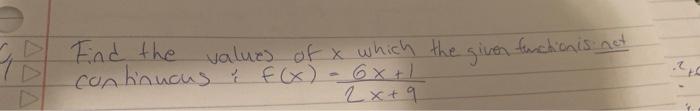 Find the values of x which the given function is not
continuous : f(x) = 6x+1
2x+9